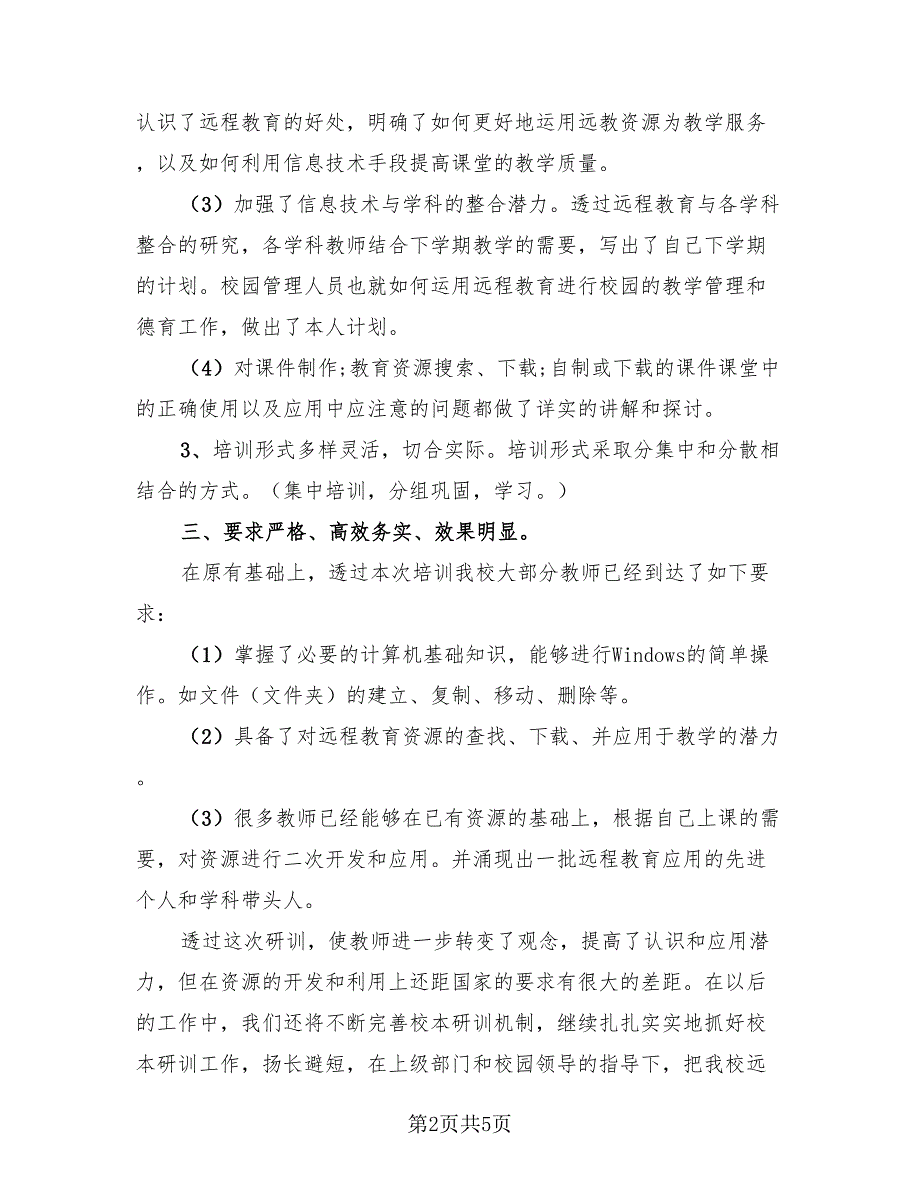 认识了远程教育的好处，明确了如何更好地运用远教资源为教学服务
，以及如何利用信息技术手段提高课堂的教学质量。
（3）加强了信息技术与学科的整合潜力。透过远程教育与各学科
整合的研究，各学科教师结合下学期教学的需要，写出了自己下学期
的计划。校园管理人员也就如何运用远程教育进行校园的教学管理和
德育工作，做出了本人计划。
（4）对课件制作;教育资源搜索、下载;自制或下载的课件课堂中
的正确使用以及应用中应注意的问题都做了详实的讲解和探讨。
3、培训形式多样灵活，切合实际。培训形式采取分集中和分散相
结合的方式。（集中培训，分组巩固，学习。）
三、要求严格、高效务实、效果明显。
在原有基础上，透过本次培训我校大部分教师已经到达了如下要
求：
（1）掌握了必要的计算机基础知识，能够进行Windows的简单操
作。如文件（文件夹）的建立、复制、移动、删除等。
（2）具备了对远程教育资源的查找、下载、并应用于教学的潜力
。
（3）很多教师已经能够在已有资源的基础上，根据自己上课的需
要，对资源进行二次开发和应用。并涌现出一批远程教育应用的先进
个人和学科带头人。
透过这次研训，使教师进一步转变了观念，提高了认识和应用潜
力，但在资源的开发和利用上还距国家的要求有很大的差距。在以后
的工作中，我们还将不断完善校本研训机制，继续扎扎实实地抓好校
本研训工作，扬长避短，在上级部门和校园领导的指导下，把我校远
第2页共5页